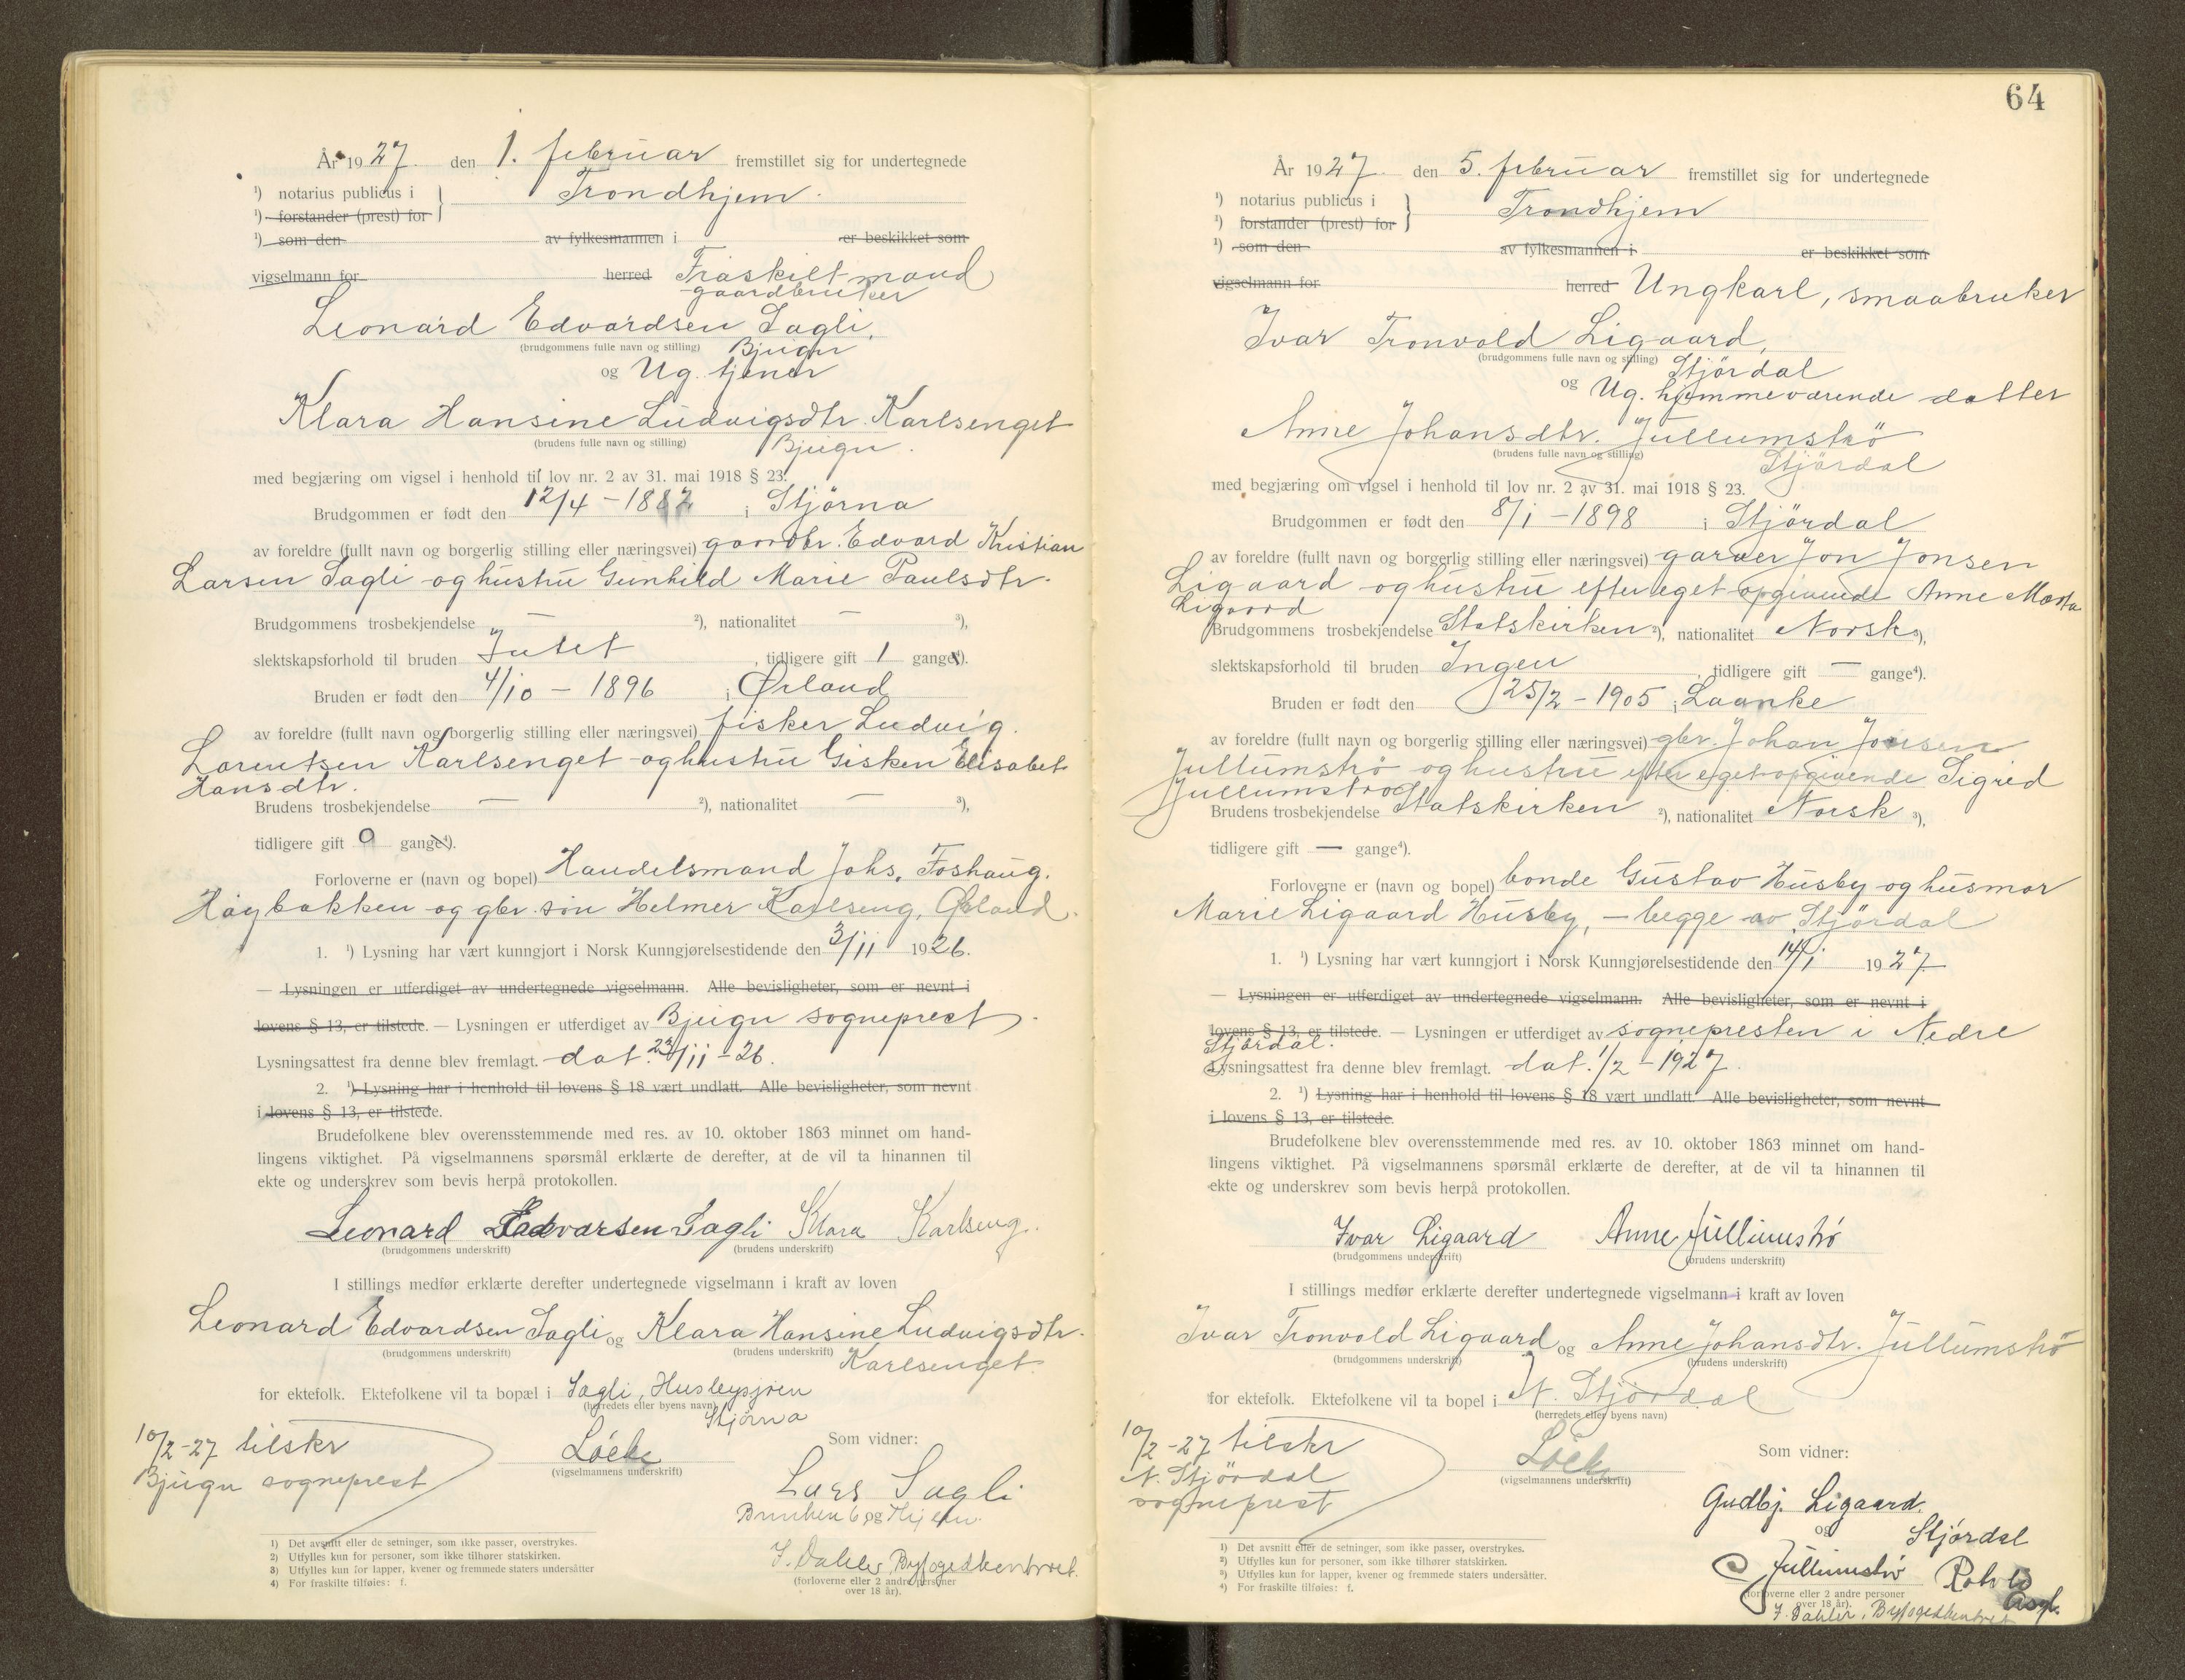 År 1927 den 1. februar fremstillet sig for undertegnede
¹) notarius publicus i } Trondhjem
¹) forstander (prest) for
¹) som den av fylkesmannen i er beskikket som
vigselmann for herred Fraskilt mand
gaardbruker
Leonard Edvardsen Sagli,
(brudgommens fulle navn og stilling) Bjugn
og Ug. tjener
Klara Hansine Ludvigsdtr. Karlsenget
(brudens fulle navn og stilling) Bjugn.
med begjæring om vigsel i henhold til lov nr. 2 av 31. mai 1918 § 23.
Brudgommen er født den 12/4 - 1882 i Stjørna
av foreldre (fullt navn og borgerlig stilling eller næringsvei) gaardbr. Edvard Kristian
Larsen Sagli og hustru Gunhild Marie Paulsdtr.
Brudgommens trosbekjendelse — ²), nationalitet — ³),
slektskapsforhold til bruden Intet, tidligere gift 1 gange⁴).
Bruden er født den 4/10 - 1896 i Ørland
av foreldre (fullt navn og borgerlig stilling eller næringsvei) fisker Ludvig
Lorentsen Karlsenget og hustru Gisken Elisabet
Hansdtr.
Brudens trosbekjendelse — ²), nationalitet — ³),
tidligere gift 0 gange⁴).
Forloverne er (navn og bopel) Handelsmand Johs. Foshaug.
Høybakken og gbr. søn Helmer Karlseng, Ørland.
1. ¹) Lysning har vært kunngjort i Norsk Kunngjørelsestidende den 3/11 1926.
— Lysningen er utferdiget av undertegnede vigselmann. Alle bevisligheter, som er nevnt i
lovens § 13, er tilstede. — Lysningen er utferdiget av Bjugn sogneprest
Lysningsattest fra denne blev fremlagt. dat. 23/11 - 26.
2. ¹) Lysning har i henhold til lovens § 18 vært undlatt. Alle bevisligheter, som nevnt
i lovens § 13, er tilstede.
Brudefolkene blev overensstemmende med res. av 10. oktober 1863 minnet om hand-
lingens viktighet. På vigselmannens spørsmål erklærte de derefter, at de vil ta hinannen til
ekte og underskrev som bevis herpå protokollen.
Leonard Edvarsen Sagli Klara Karlseng.
(brudgommens underskrift) (brudens underskrift)
I stillings medfør erklærte derefter undertegnede vigselmann i kraft av loven
Leonard Edvardsen Sagli og Klara Hansine Ludvigsdtr.
(brudgommens underskrift) (brudens underskrift) Karlsenget
for ektefolk. Ektefolkene vil ta bopæl i Sagli, Husbysjøen
(herredets eller byens navn) Stjørna
10/2-27 tilskr
Bjugn sogneprest
(vigselmannens underskrift)
Som vidner:
Lars Sagli
J. Dahler, Byfogedkontoret.
(forloverne eller 2 andre personer
over 18 år).
1) Det avsnitt eller de setninger, som ikke passer, overstrykes.
2) Utfylles kun for personer, som ikke tilhører statskirken.
3) Utfylles kun for lapper, kvener og fremmede staters undersåtter
4) For fraskilte tilføies: f.
64
År 1927 den 5. februar fremstillet sig for undertegnede
¹) notarius publicus i } Trondhjem
¹) forstander (prest) for
¹) som den av fylkesmannen i er beskikket som
vigselmann for herred Ungkarl, smaabruker
Ivar Tronvold Ligaard,
(brudgommens fulle navn og stilling) Stjørdal
og Ug. hjemmeværende datter
Anne Johansdtr. Jullumstrø
(brudens fulle navn og stilling) Stjørdal
med begjæring om vigsel i henhold til lov nr. 2 av 31. mai 1918 § 23.
Brudgommen er født den 8/1 - 1898 i Stjørdal
av foreldre (fullt navn og borgerlig stilling eller næringsvei) garver Jon Jonsen
Ligaard og hustru efter eget opgivende Anne Marta
Ligaard
Brudgommens trosbekjendelse Statskirken ²), nationalitet Norsk ³),
slektskapsforhold til bruden Ingen, tidligere gift — gange⁴).
Bruden er født den 25/2 - 1905 i Laanke
av foreldre (fullt navn og borgerlig stilling eller næringsvei) gbr. Johan Jonsen
Jullumstrø og hustru efter eget opgivende Sigrid
Jullumstrø
Brudens trosbekjendelse Statskirken ²), nationalitet Norsk ³),
tidligere gift — gange⁴).
Forloverne er (navn og bopel) bonde Gustav Husby og husmor
Marie Ligaard Husby, — begge av Stjørdal
1. ¹) Lysning har vært kunngjort i Norsk Kunngjørelsestidende den 14/1 1927
— Lysningen er utferdiget av undertegnede vigselmann. Alle bevisligheter, som er nevnt i
lovens § 13, er tilstede. — Lysningen er utferdiget av sognepresten i Nedre
Stjørdal.
Lysningsattest fra denne blev fremlagt. dat. 1/2 - 1927.
2. ¹) Lysning har i henhold til lovens § 18 vært undlatt. Alle bevisligheter, som nevnt
i lovens § 13, er tilstede.
Brudefolkene blev overensstemmende med res. av 10. oktober 1863 minnet om hand-
lingens viktighet. På vigselmannens spørsmål erklærte de derefter, at de vil ta hinannen til
ekte og underskrev som bevis herpå protokollen.
Ivar Ligaard Anne Jullumstrø
(brudgommens underskrift) (brudens underskrift)
I stillings medfør erklærte derefter undertegnede vigselmann i kraft av loven
Ivar Tronvold Ligaard og Anne Johansdtr. Jullumstrø
(brudgommens underskrift) (brudens underskrift)
for ektefolk. Ektefolkene vil ta bopel i N. Stjørdal
(herredets eller byens navn)
10/2-27 tilskr
N. Stjørdal
sogneprest
(vigselmannens underskrift)
Som vidner:
Gudbj. Ligaard.
og Stjördal
Jullumstrø
(forloverne eller 2 andre personer
over 18 år).
J. Dahler, Byfogedkontoret
1) Det avsnitt eller de setninger, som ikke passer, overstrykes.
2) Utfylles kun for personer, som ikke tilhører statskirken.
3) Utfylles kun for lapper, kvener og fremmede staters undersåtter.
4) For fraskilte tilføies: f.